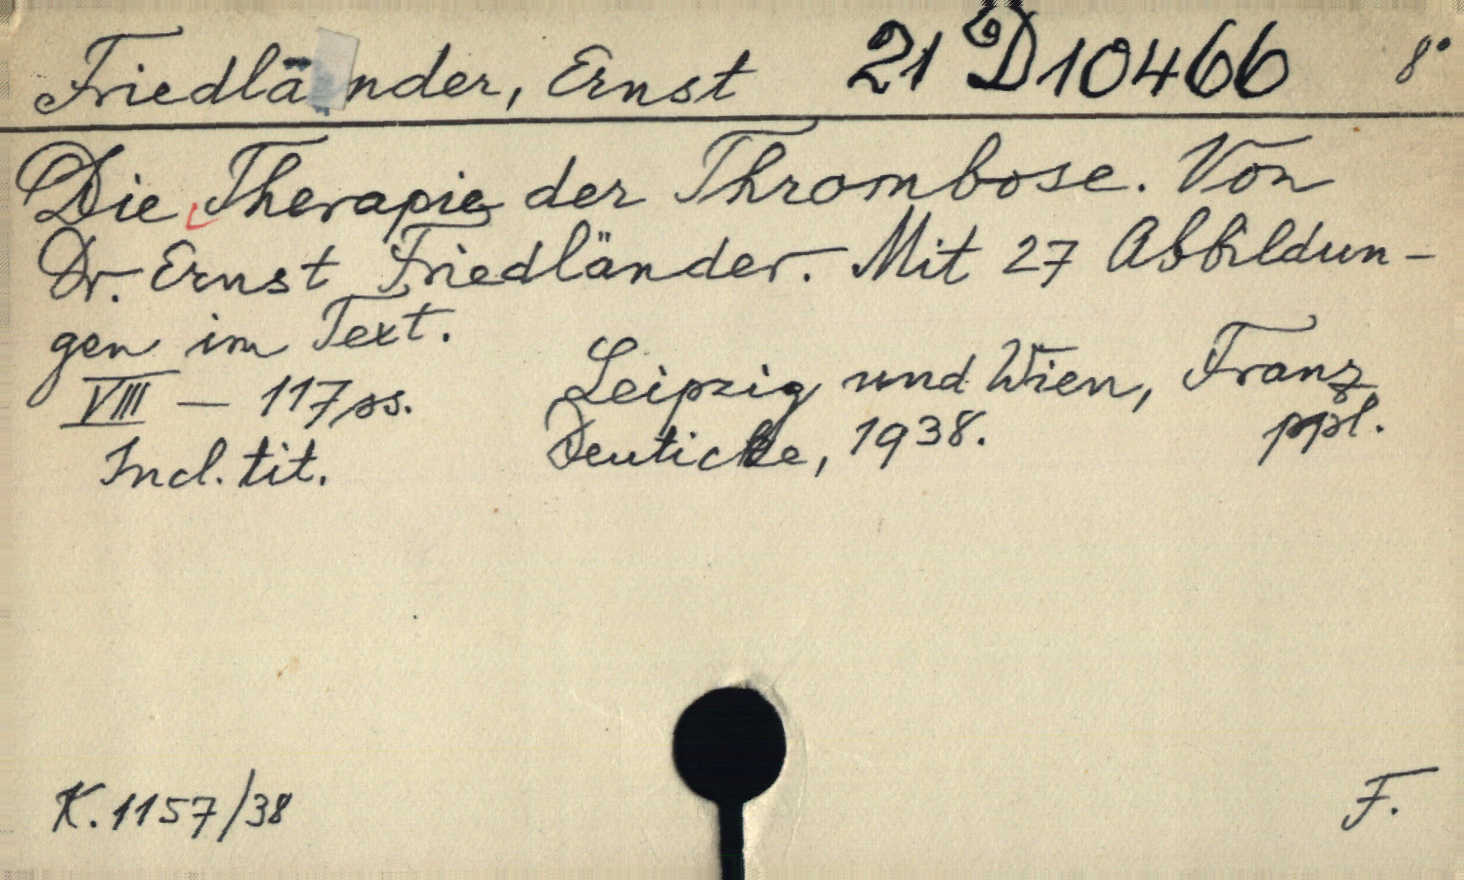 Friedländer, Ernst 21 D 10466 8°
Die Therapie der Thrombose. Von
Dr. Ernst Friedländer. Mit 27 Abbildun-
gen im Text.
Leipzig und Wien, Franz
VIII — 117 ss.
Deuticke, 1938. ppl.
Incl. tit.
K. 1157/38 F.